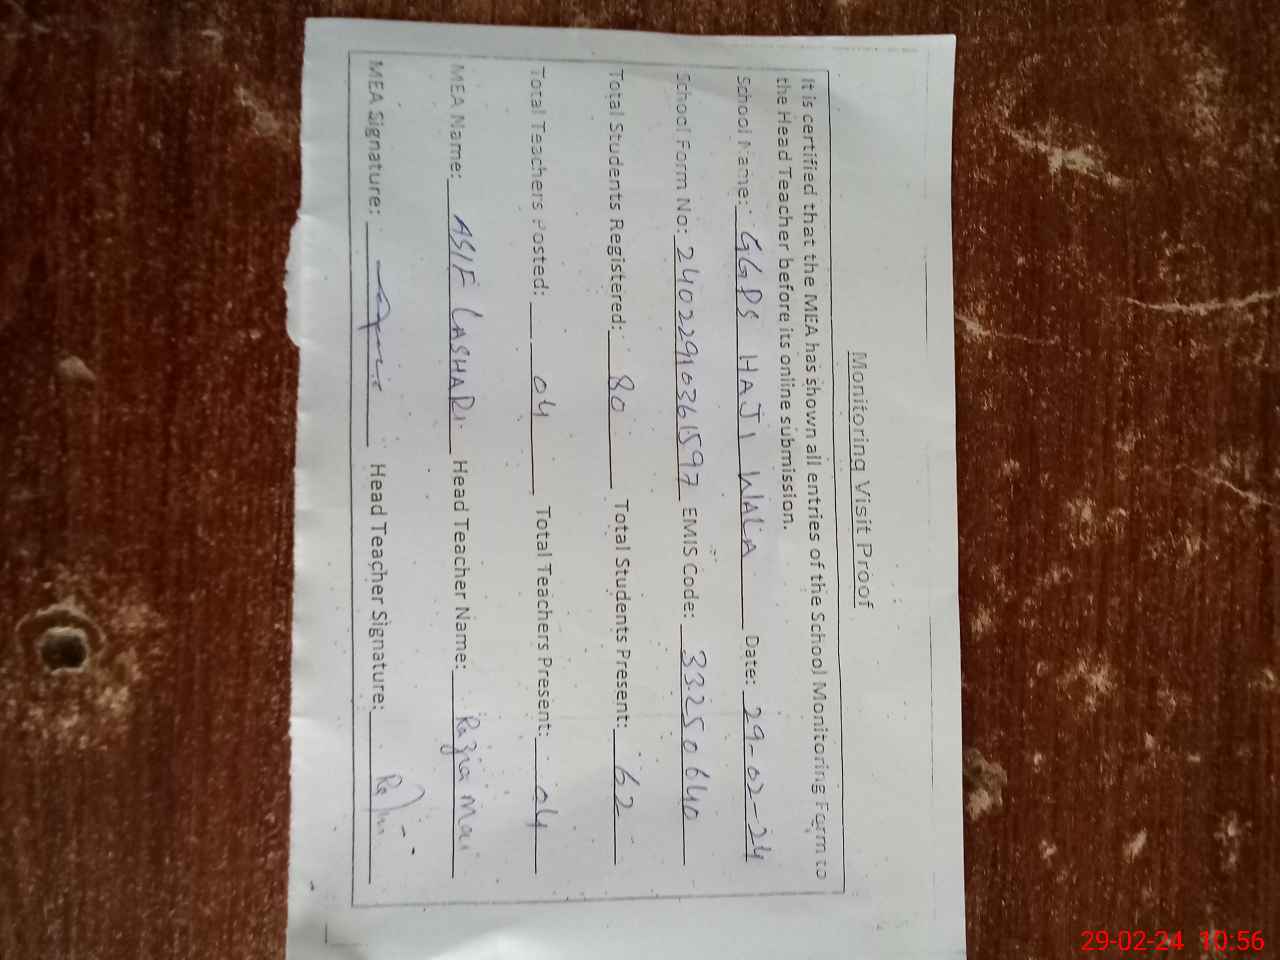 Monitoring Visit Proof
It is certified that the MEA has shown all entries of the School Monitoring Form to
the Head Teacher before its online submission.
School Name: GGPS HAJI WALA Date: 29-02-24
School Form No: 24022910361597 EMIS Code: 33250640
Total Students Registered: 80 Total Students Present: 62
Total Teachers Posted: 04 Total Teachers Present: 04
MEA Name: ASIF LASHARI Head Teacher Name: Razia Mai
MEA Signature: Head Teacher Signature:
29-02-24 10:56